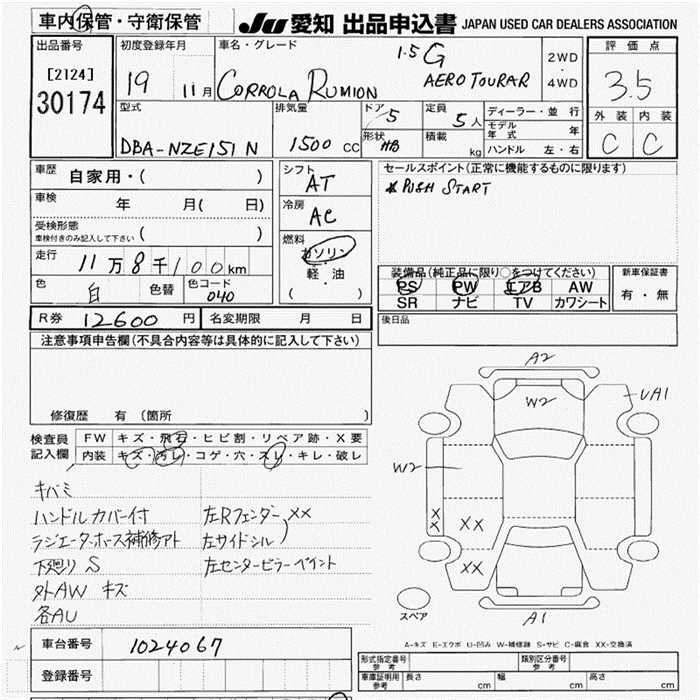 車内保管・守衛保管
JU 愛知 出品申込書 JAPAN USED CAR DEALERS ASSOCIATION
出品番号
[2124]
30174
初度登録年月
19 11月
車名・グレード
CORROLA RUMION
1.5 G
AERO TOURAR
2WD
・
4WD
評価点
3.5
外装 内装
C C
型式
DBA-NZE151N
排気量
1500 CC
ドア
5
形状
HB
定員
5人
積載
kg
ディーラー・並行
モデル年式 年
ハンドル 左・右
車歴
自家用・( )
車検
年 月( 日)
受検形態
車検付きのみ記入して下さい ( )
走行
11万8千100km
色
白 色替
色コード
040
シフト
AT
冷房
AC
燃料
ガソリン
・
軽油
( )
セールスポイント(正常に機能するものに限ります)
* PUSH START
装備品(純正品に限り○をつけてください)
PS PW エアB AW
SR ナビ TV カワシート
新車保証書
有・無
R券 12600 円 名変期限 月 日
後日品
注意事項申告欄(不具合内容等は具体的に記入して下さい)
修復歴 有(箇所 )
検査員
記入欄
FW キズ・飛石・ヒビ割・リペア跡・X要
内装 キズ・汚レ・コゲ・穴・スレ・キレ・破レ
キバミ
ハンドルカバー付
ラジエーターホース補修アト
下廻り S
外AW キズ
各AU
左Rフェンダー XX
左サイドシル
左センターピラー ペイント
A2
W2
UA1
W2
X
X
XX
XX
A1
スペア
A-キズ E-エクボ U-凹み W-補修跡 S-サビ C-腐食 XX-交換済
車台番号 1024067
登録番号
形式指定番号
参考
類別区分番号
参考
車庫証明用
参考
長さ cm 幅 cm 高さ cm